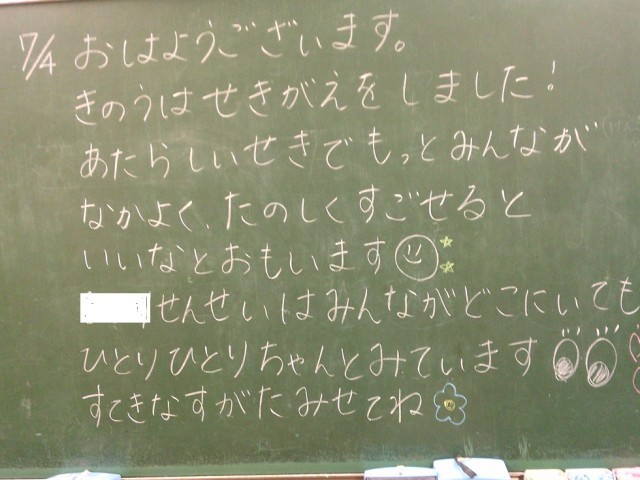 7/4 おはようございます。
きのうはせきがえをしました!
あたらしいせきでもっとみんなが
なかよく、たのしくすごせると
いいなとおもいます
せんせいはみんながどこにいても
ひとりひとりちゃんとみています
すてきなすがたみせてね